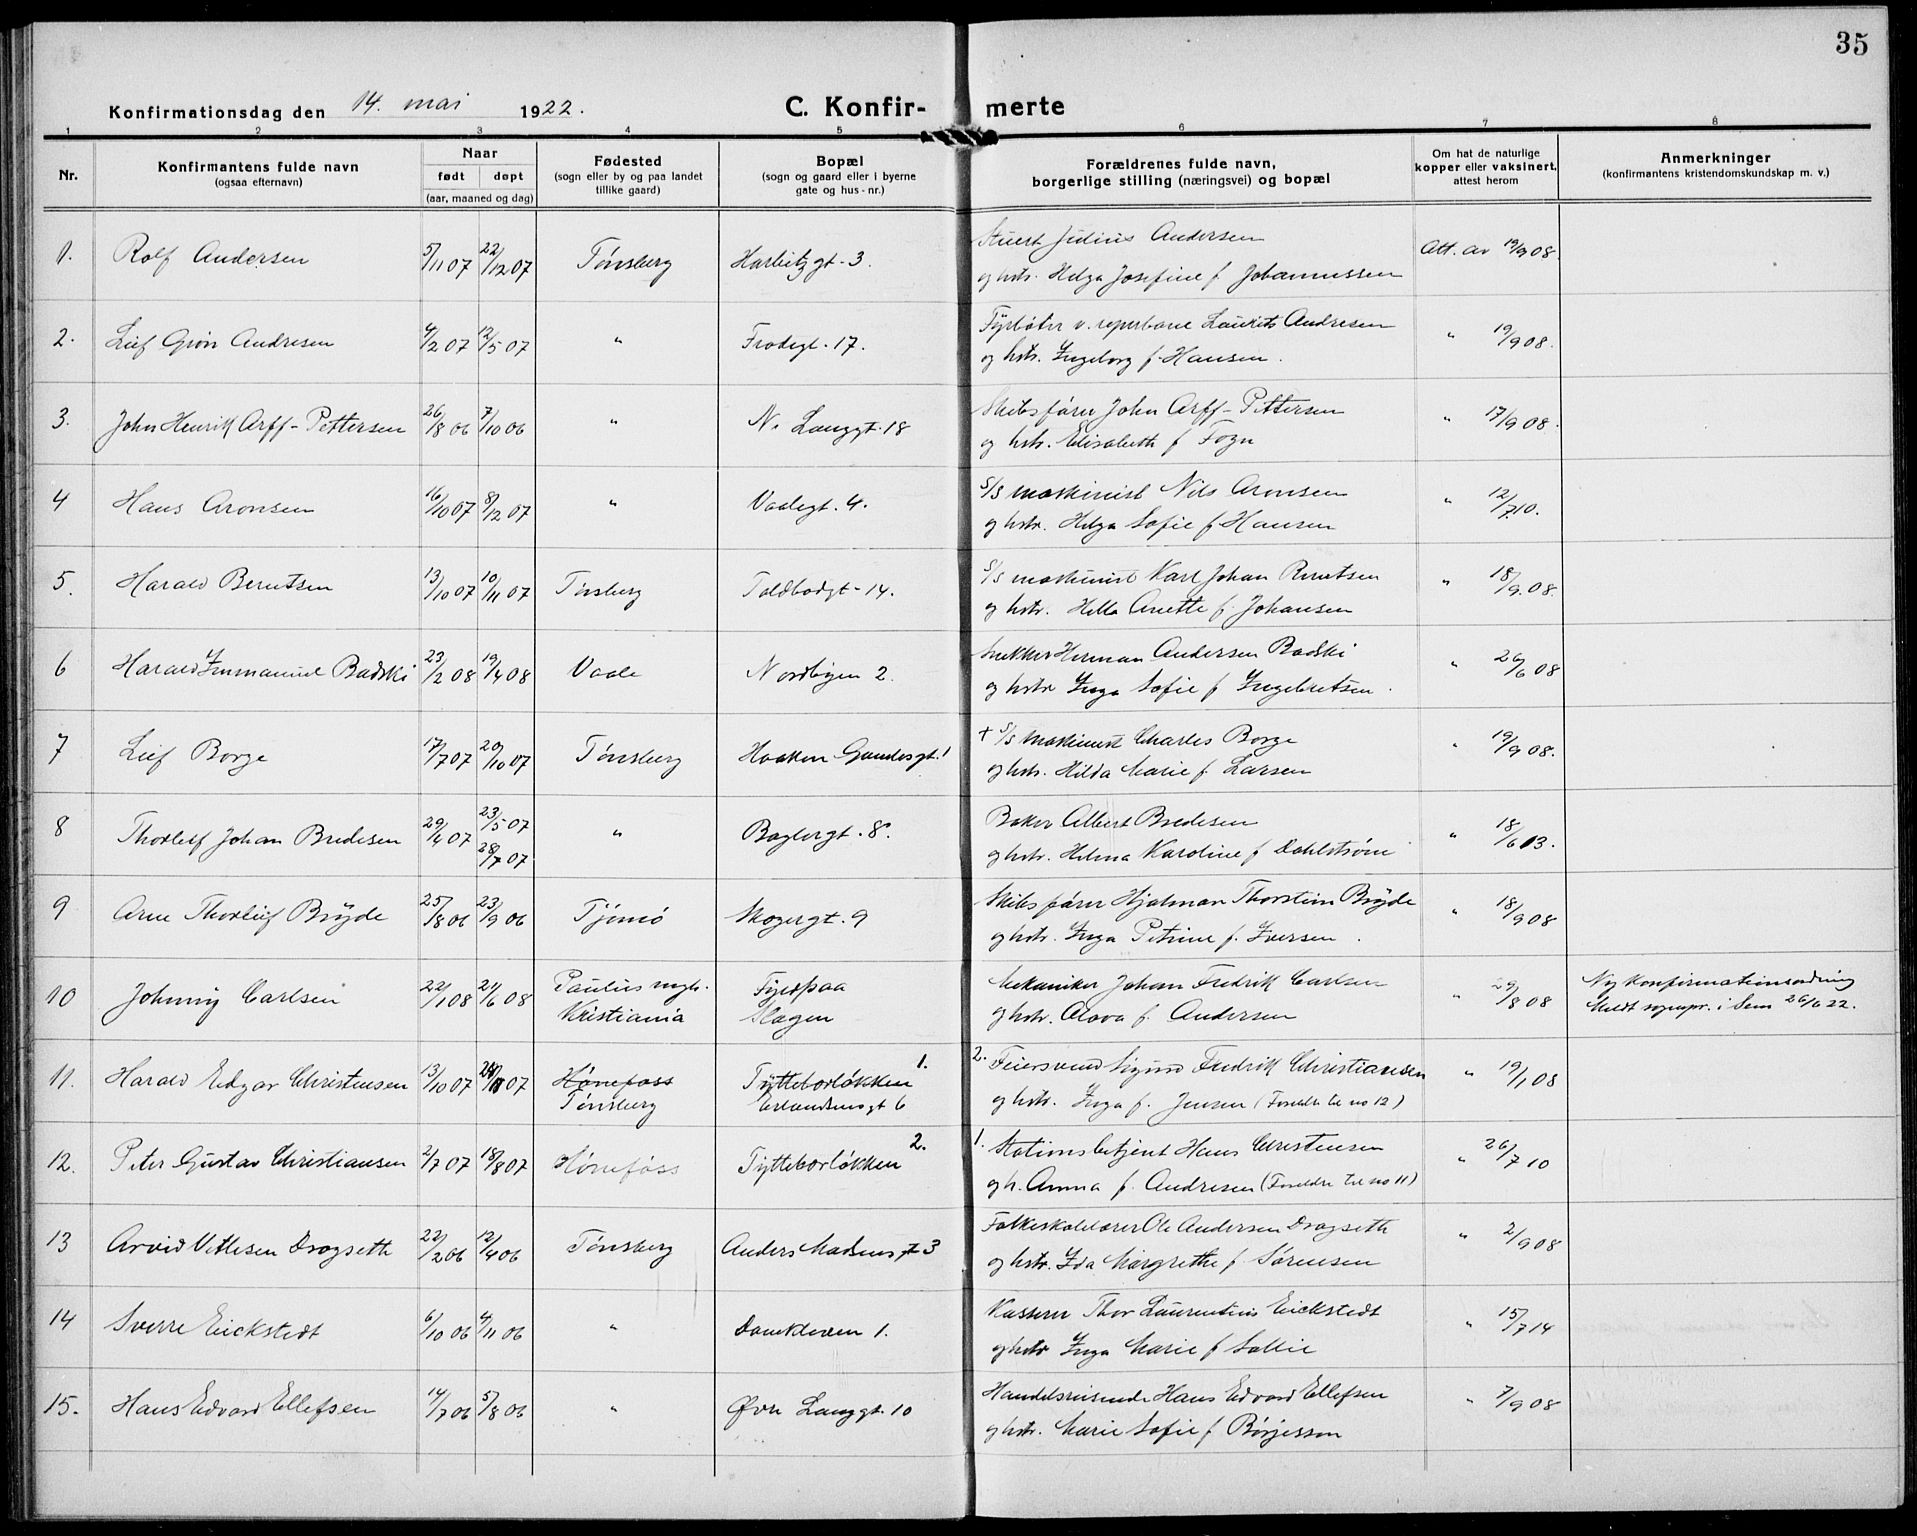 35
Konfirmationsdag den 14. mai 1922.
C. Konfir- merte
1 2 3 4 5 6 7 8
Nr.
Konfirmantens fulde navn
(ogsaa efternavn)
Naar
født døpt
(aar, maaned og dag)
Fødested
(sogn eller by og paa landet
tillike gaard)
Bopæl
(sogn og gaard eller i byerne
gate og hus-nr.)
Forældrenes fulde navn,
borgerlige stilling (næringsvei) og bopæl
Om hat de naturlige
kopper eller vaksinert,
attest herom
Anmerkninger
(konfirmantens kristendomskundskap m. v.)
1. Rolf Andersen 5/11 07 22/12 07 Tønsberg Harbitzgt. 3.
Stuert Julius Andersen
og hstr. Helga Josefine f. Johannessen
Att. av 19/9 08.
2. Leif Grøn Andresen 4/2 07 12/5 07 " Frodegt. 17.
Fyrbøter v. reperbane Laurits Andresen
og hstr. Ingeborg f. Hansen.
" 19/9 08.
3. John Henrik Arff-Pettersen 26/8 06 7/10 06 " N. Langgt. 18
Skibsfører John Arff-Pettersen
og hstr. Elisabeth f. Fogn
" 17/9 08.
4 Hans Aronsen 16/10 07 8/12 07 " Vaalegt. 4.
S/S maskinist Nils Aronsen
og hstr. Helga Sofie f. Hansen
" 12/7 10.
5. Harald Berntsen 13/10 07 10/11 07 Tønsberg Toldbodgt. 14.
S/S maskinist Karl Johan Berntsen
og hstr. Hella Anette f. Johansen
" 18/9 08.
6 Harald Immanuel Badski 23/2 08 19/4 08 Vaale Nordbyen 2.
Snekker Herman Andersen Badski
og hstr Inga Sofie f. Ingebretsen.
" 26/6 08
7 Leif Borge 17/7 07 20/10 07 Tønsberg Haaken Gamlesgt. 1
+ S/S maskinist Charles Borge
og hstr. Hilda Marie f. Larsen
" 19/9 08.
8 Thorleif Johan Bredesen 29/4 07 23/5 07 " Baglergt. 8.
28/7 07
Baker Albert Bredesen
og hstr. Helma Karoline f. Dahlstrøm
" 18/6 13.
9 Arne Thorleif Bryde 25/8 06 23/9 06 Tjømø Skogergt. 9
Skibsfører Hjalmar Thorstein Bryde
og hstr. Inga Petrine f. Iversen.
" 18/9 08
10 Johnny Carlsen 22/1 08 21/6 08 Paulus mgh. Fyrspaa
Kristiania Slagen
Mekaniker Johan Fredrik Carlsen
og hstr. Alova f. Andersen
" 29/8 08
Ny konfirmationsordning
Meldt sognepr. i Sem 26/6 22.
11. Harald Edgar Christensen 13/10 07 07 Hønefoss Tytteborløkken 1.
Tønsberg Erlandsensgt 6
2. Feiersvend Sigurd Fredrik Christiansen
og hstr. Inga f. Jensen (Foreldre til no 12)
" 19/1 08
12. Peter Gustav Christiansen 2/7 07 18/8 07 Hønefoss Tytteborløkken 2.
1. Stationsbetjent Hans Christensen
og h. Anna f. Andresen (Foreldre til no 11)
" 26/7 10
13 Arvid Vetlesen Dragseth 22/2 06 12/4 06 Tønsberg Anders Madsens gt 3
Folkeskolelærer Ole Andersen Dragseth
og hstr. Ida Margrethe f. Sørensen
" 2/9 08
14 Sverre Eickstedt 6/10 06 4/11 06 " Danekleven 1.
Kasserer Thor Laurentius Eickstedt
og hstr Inga Marie f. Sollie
" 15/7 14
15. Hans Edvard Ellefsen 14/7 06 5/8 06 " Øvre Langgt. 10
Handelsreisende Hans Edvard Ellefsen
og hstr. Marie Sofie f. Børjesson
" 7/9 08